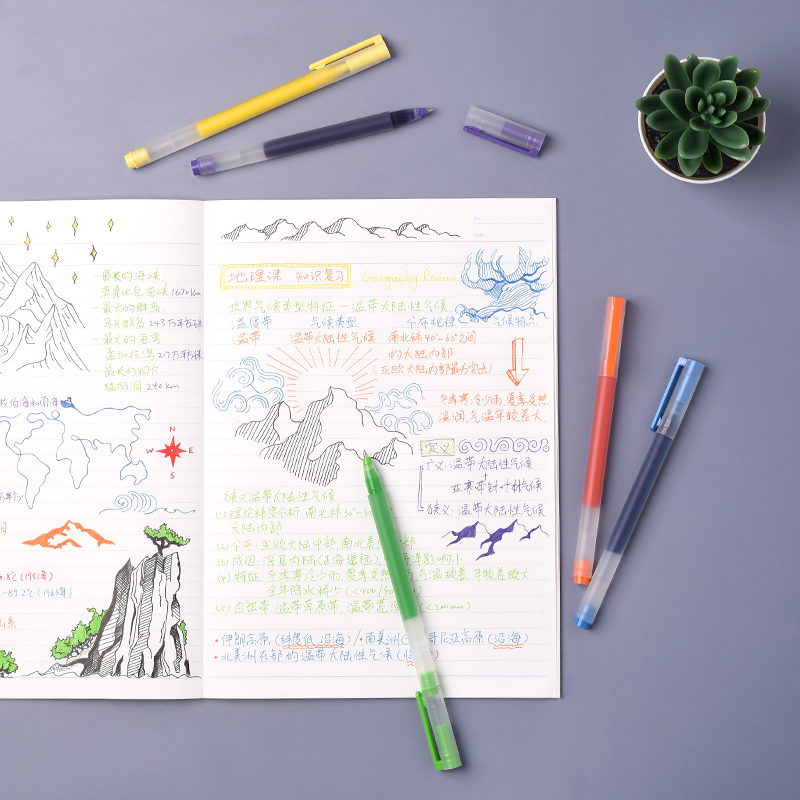 最长的海峡
莫桑比克海峡 1670km
最大的群岛
马来群岛 243万平方km
最大的海湾
孟加拉湾 217万平方km
最长的洞穴
240km
N
W E
S
(1951年)
-89.2℃ (1983年)
No.
Date.
地理课 知识复习 Geography Review
世界气候类型特征－温带大陆性气候
温度带 气候类型 分布规律 气候特点
温带 温带大陆性气候 南北纬40°-60°之间
的大陆内部
(亚欧大陆内部最为突出)
冬寒冷少雨,夏季炎热
湿润,气温年较差大
定义
广义:温带大陆性气候
+
亚寒带针叶林气候
狭义:温带大陆性气候
狭义温带大陆性气候
(1) 理论纬度分析 南北纬
大陆内部
(2) 分布:亚欧大陆中部 南北美
(3) 成因:深居内陆
(4) 特征 冬季寒冷少雨,夏季炎热 气温较差 年较差较大
全年降水稀少 (<400
(5) 自然带 温带草原带,温带荒漠
• 伊朗高原 (纬度低 沿海) / • 南美洲 尼亚高原 (沿海)
• 北美洲 部的温带大陆性气候